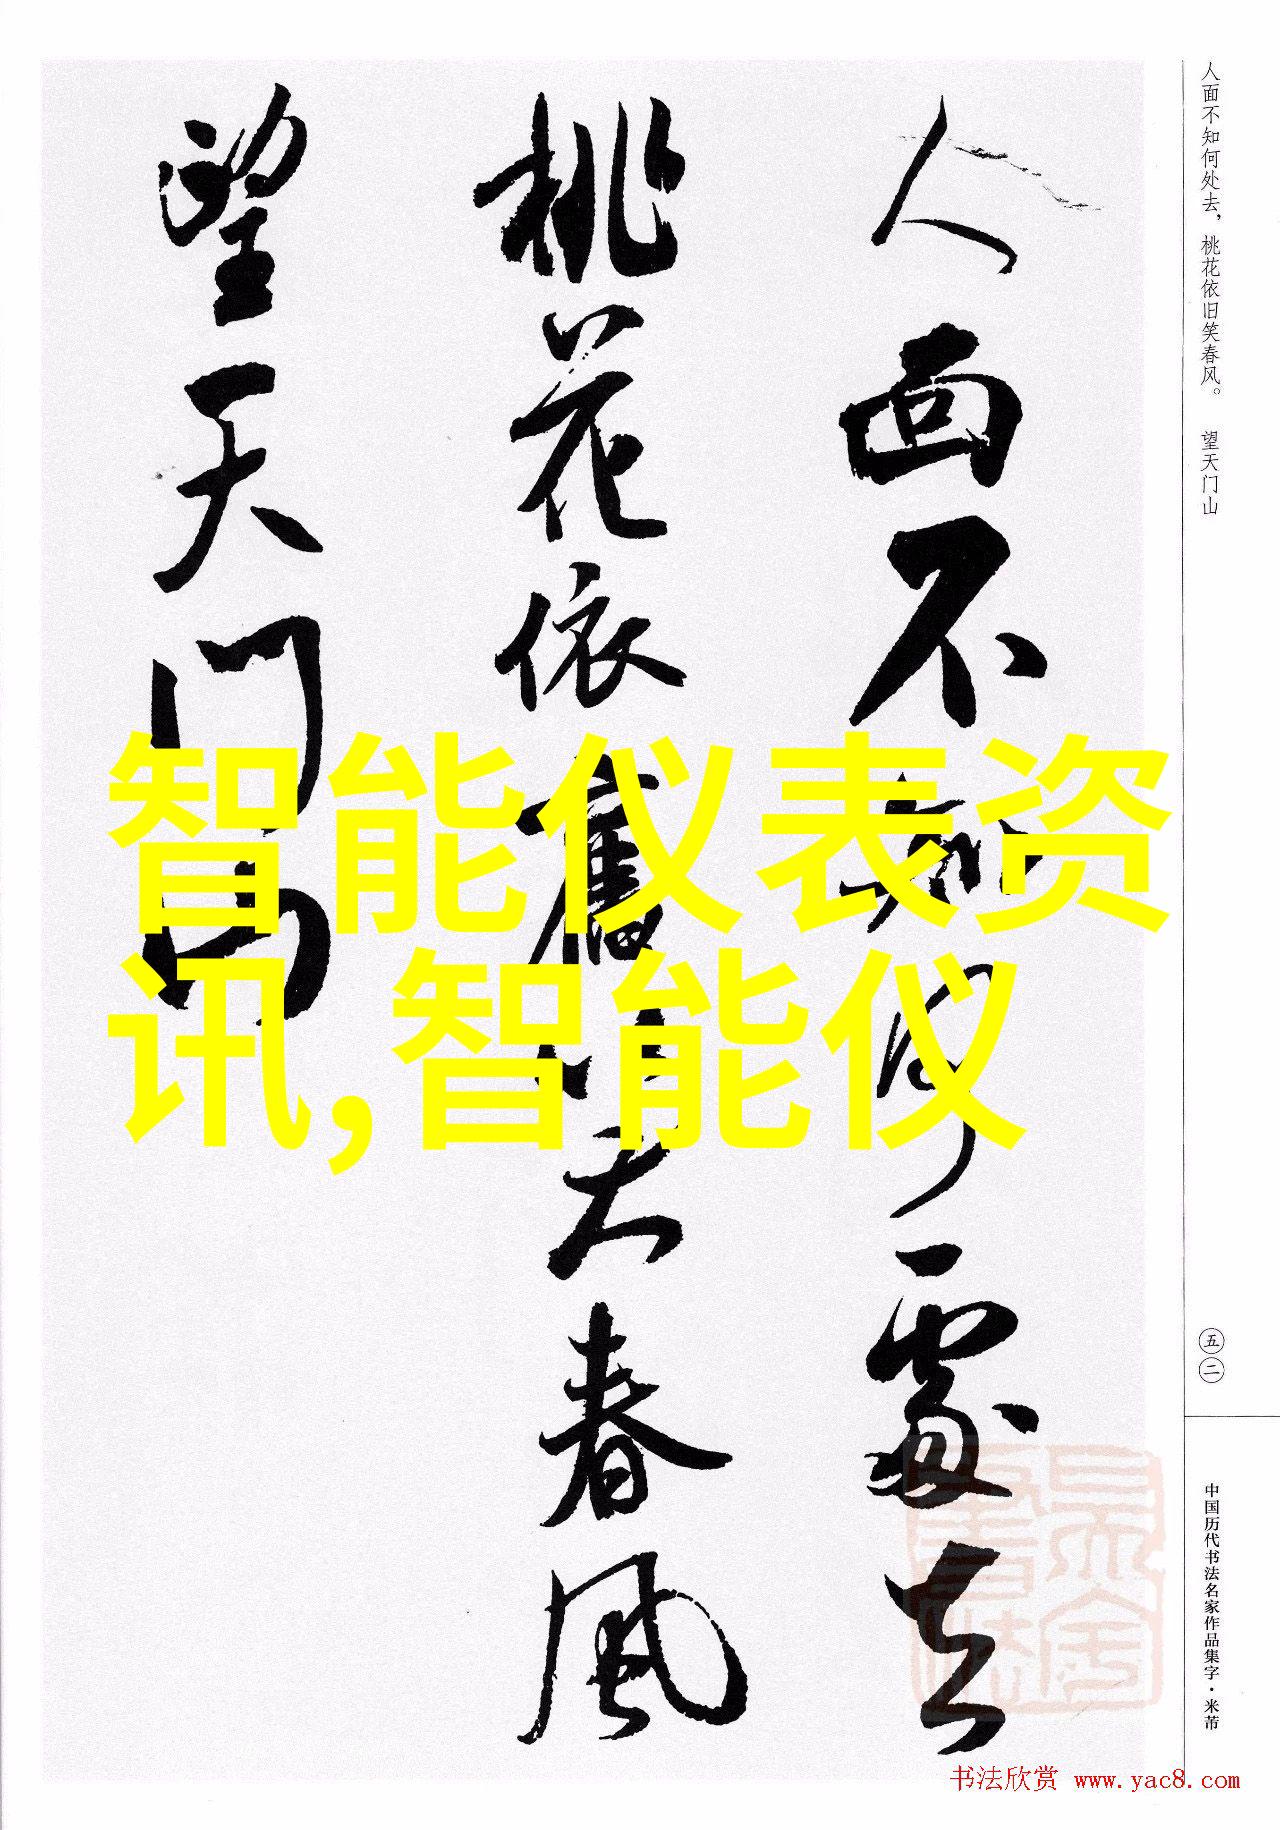 人面不知何處去
桃花依舊笑春風
望天門山
人面不知何处去，桃花依旧笑春风。 望天门山
智能仪表资
讯,智能仪
五二
中国历代书法名家作品集字·米芾
书法欣赏 www.yac8.com